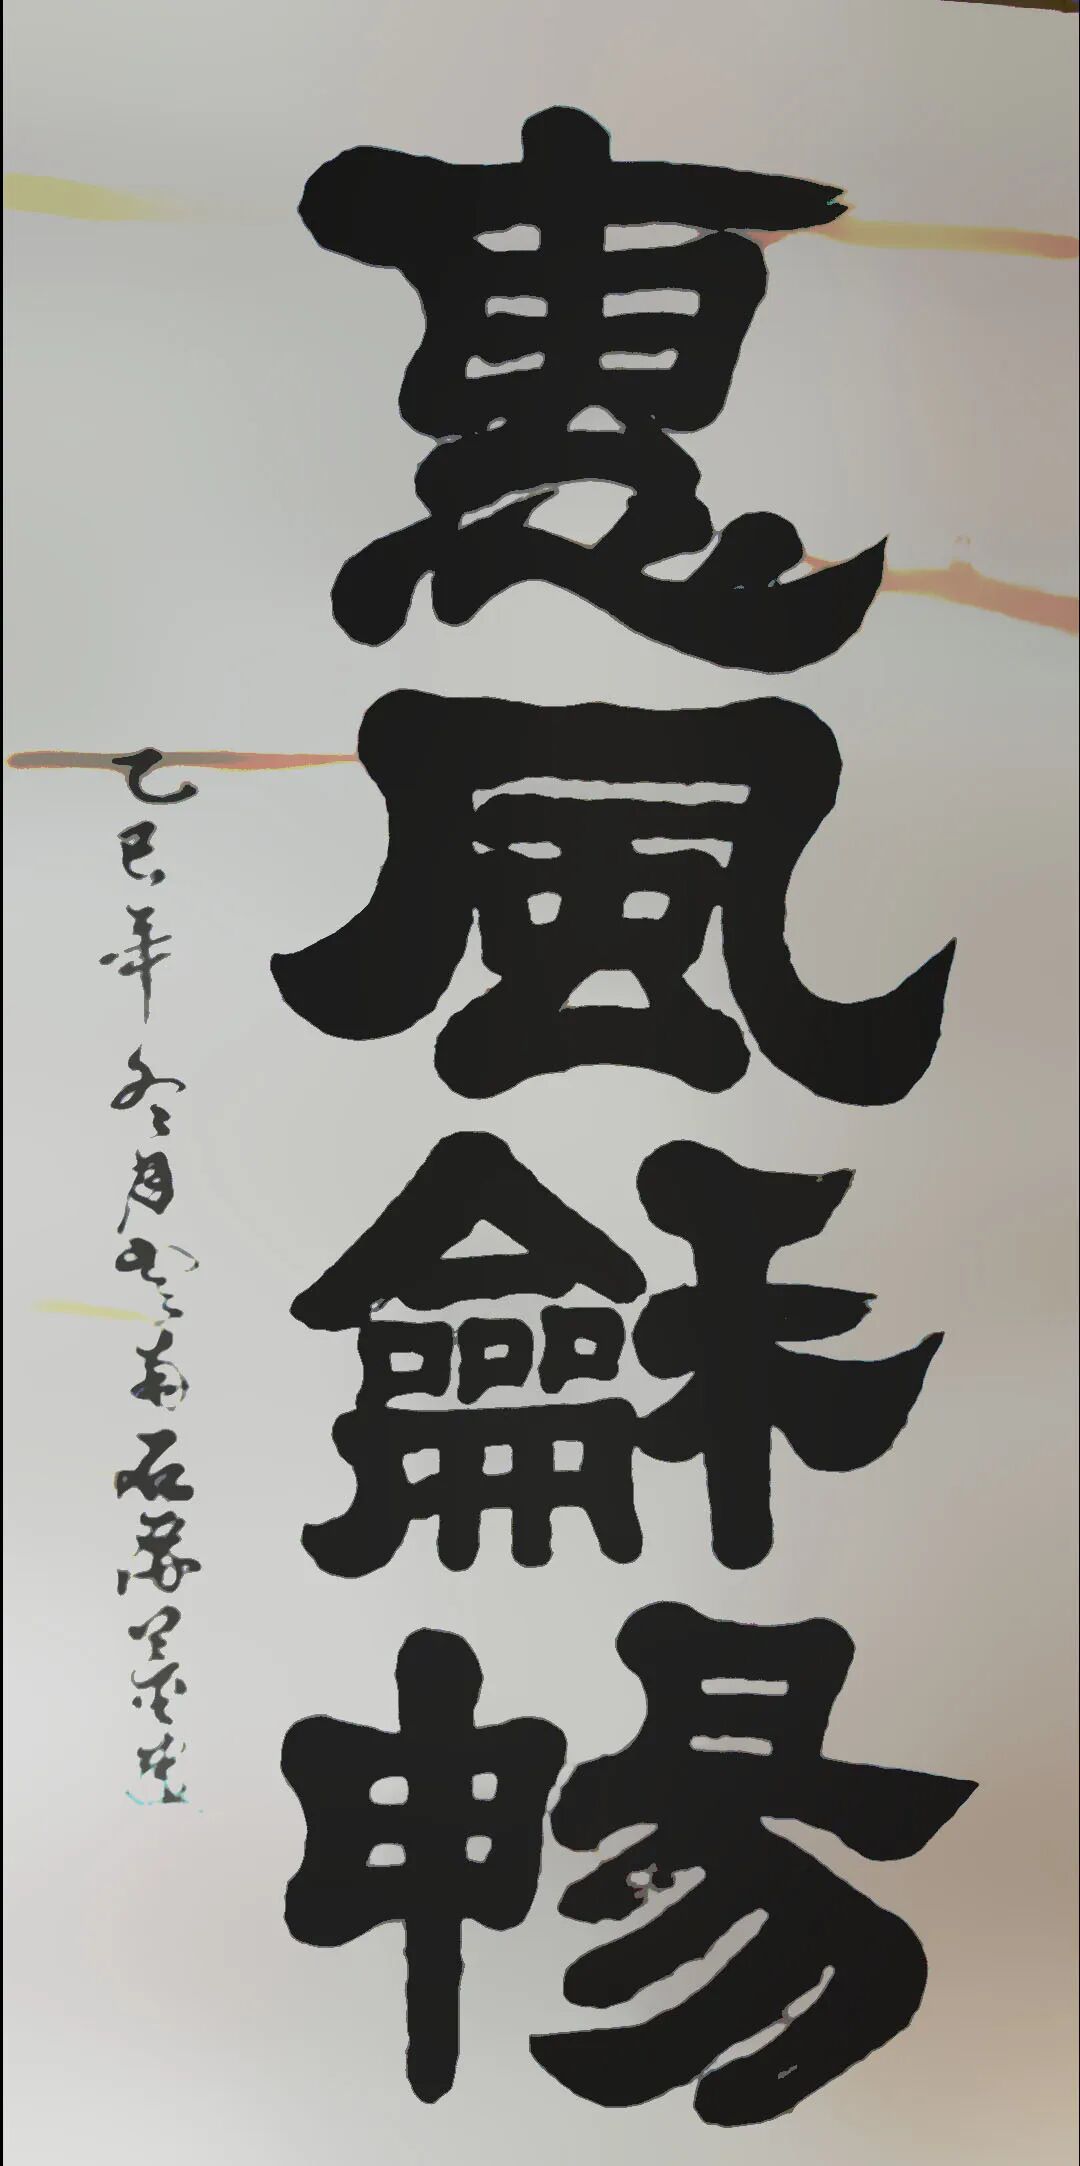 惠風龢暢
乙巳年冬月於南石